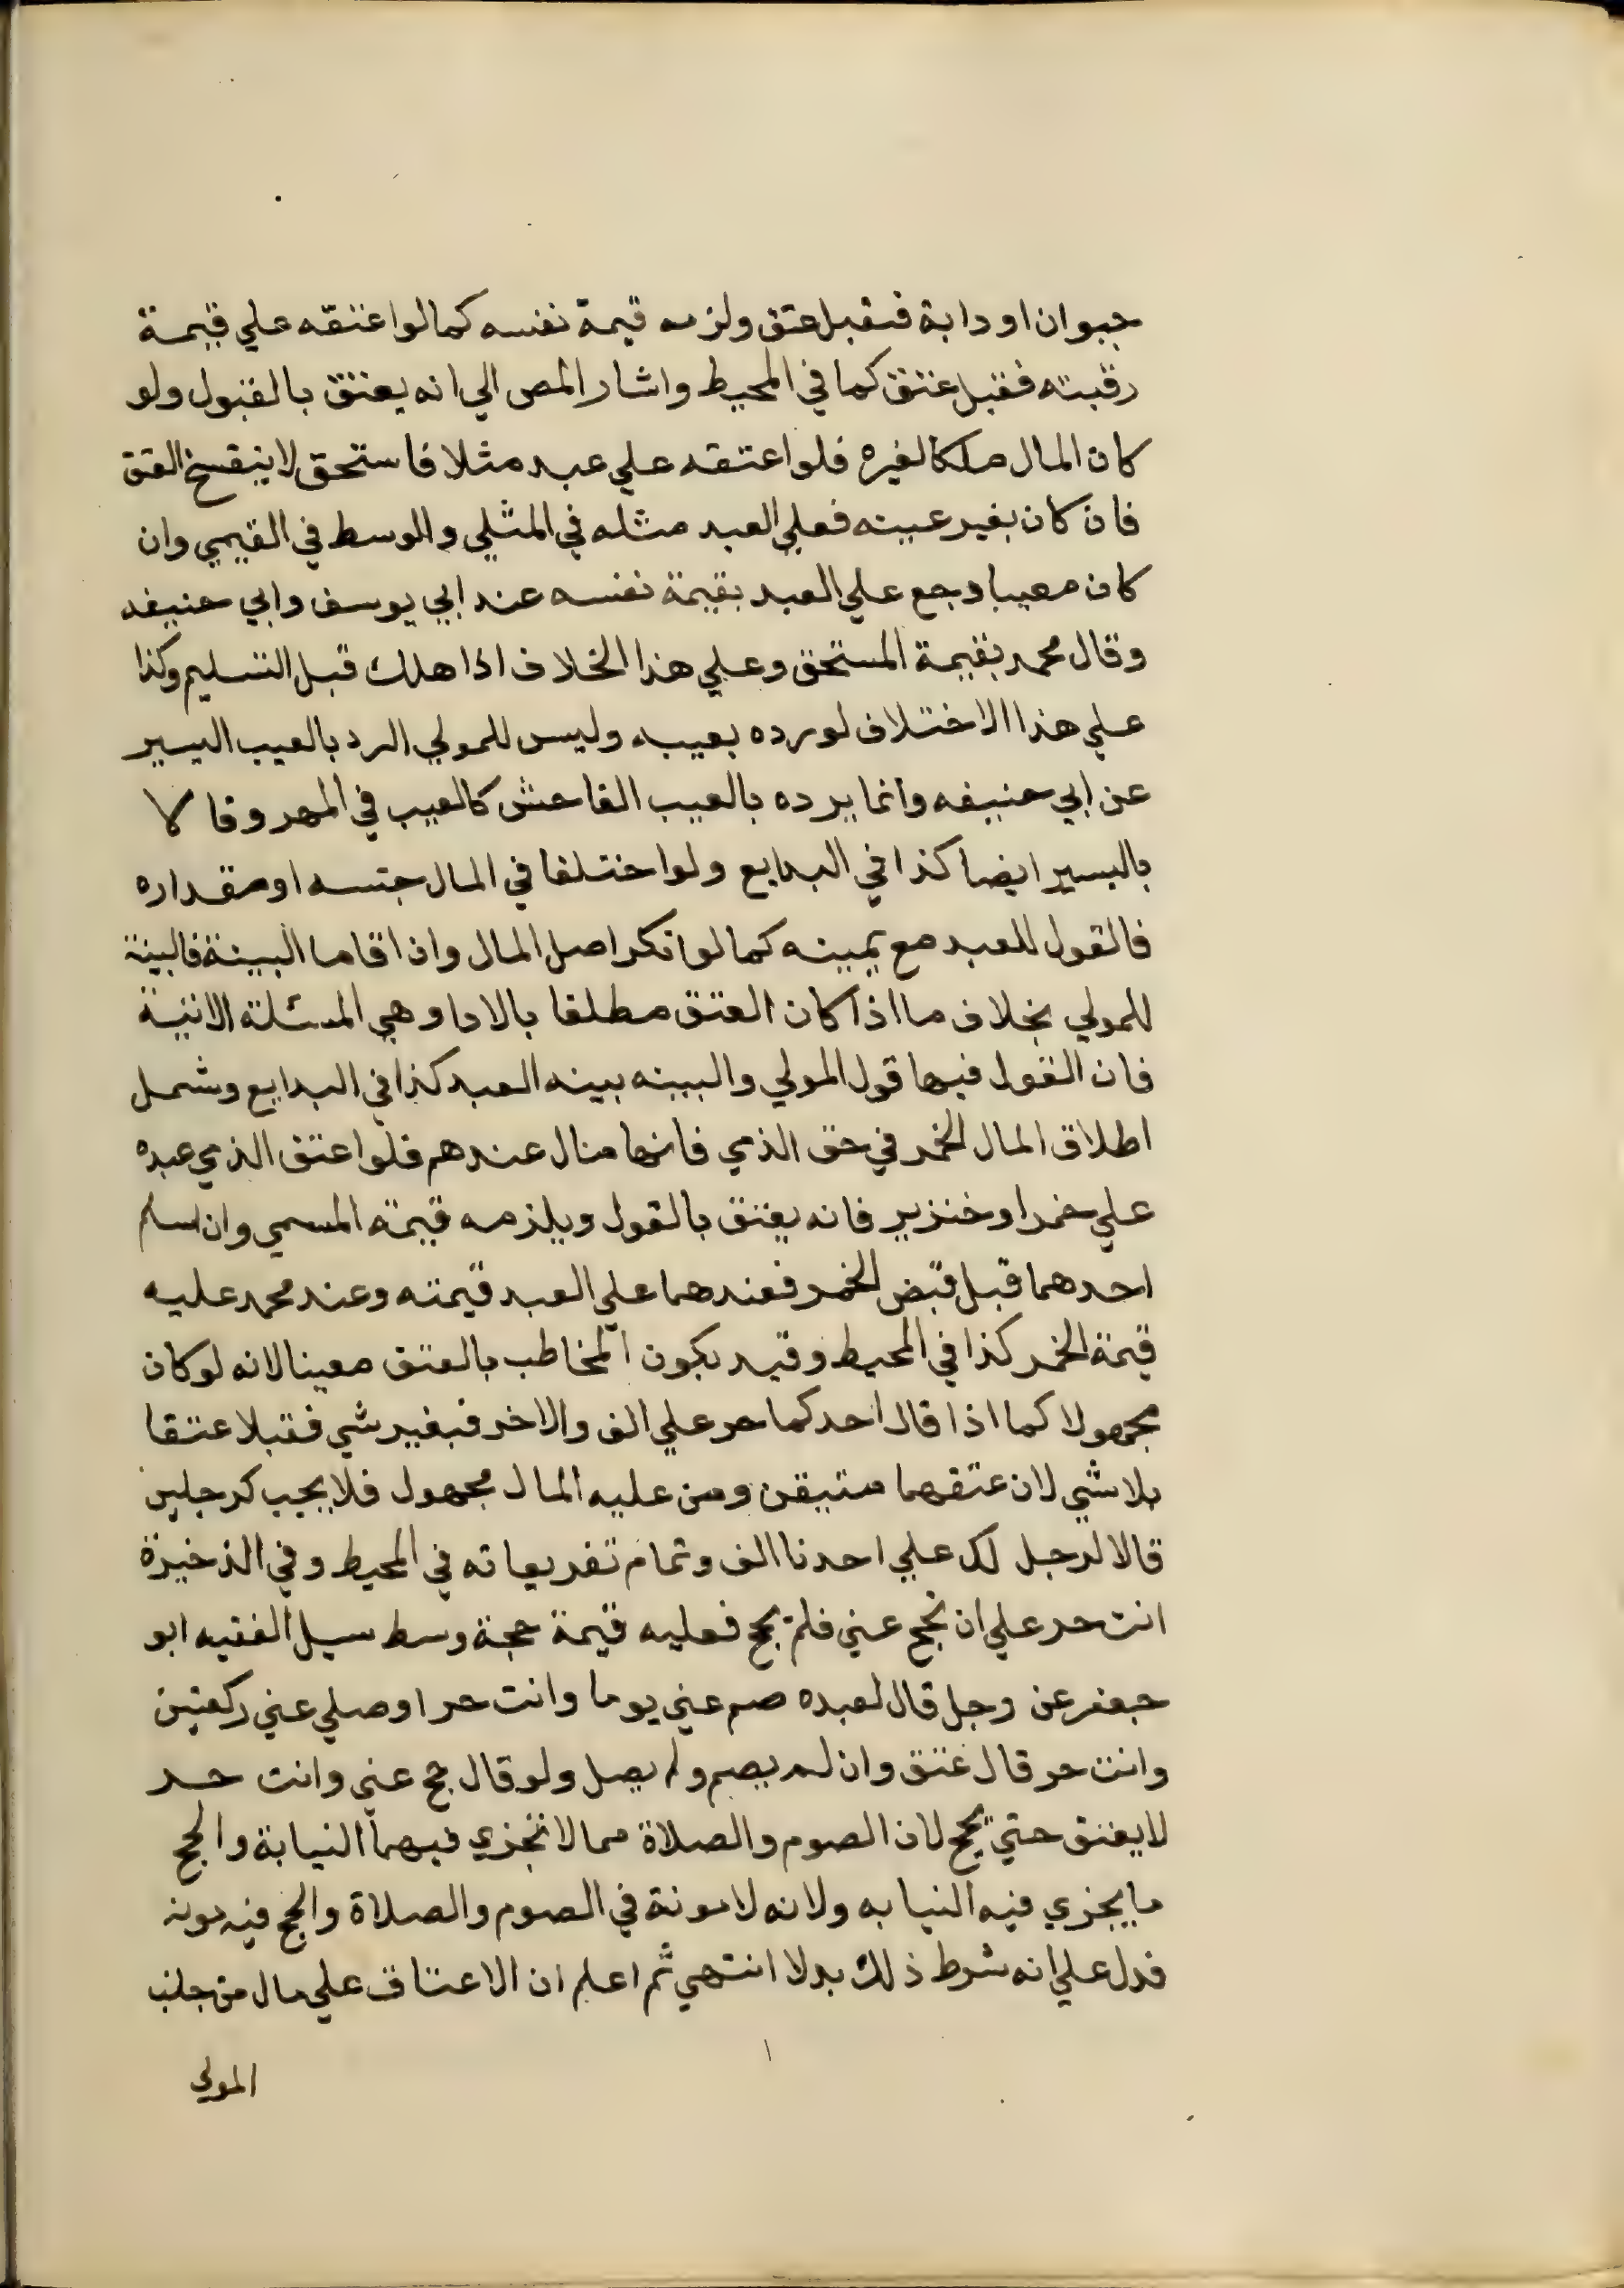 حيوان او دابة فقبل عتق ولزمه قيمة نفسه كما لو اعتقه علي قيمة
رقبته فقبل عتق كما في المحيط واشار المص الي انه يعتق بالقبول ولو
كان المال ملكا لغيره فلو اعتقه علي عبد مثلا فاستحق لا ينفسخ العتق
فان كان بغير عينه فعلي العبد مثله في المثلي والوسط في القيمي وان
كان معيبا رجع علي العبد بقيمة نفسه عند ابي يوسف وابي حنيفه
وقال محمد بقيمة المستحق وعلي هذا الخلاف اذا هلك قبل التسليم وكذا
علي هذا الاختلاف لو رده بعيب وليس للمولي الرد بالعيب اليسير
عن ابي حنيفه وانما يرده بالعيب الفاحش كالعيب في المهر وقالا
باليسير ايضا كذا في البدايع ولو اختلفا في المال جنسه او مقداره
فالقول للعبد مع يمينه كما لو انكر اصل المال وان اقاما البينة فالبينة
للمولي بخلاف ما اذا كان العتق مطلقا بالادا وهي المسئلة الاتية
فان القول فيها قول المولي والبينه بينه العبد كذا في البدايع وشمل
اطلاق المال الخمر في حق الذمي فانها مال عندهم فلو اعتق الذمي عبده
علي خمر او خنزير فانه يعتق بالقول ويلزمه قيمة المسمي وان اسلم
احدهما قبل قبض الخمر فعندهما علي العبد قيمته وعند محمد عليه
قيمة الخمر كذا في المحيط وقيد بكون المخاطب بالعتق معينا لانه لو كان
مجهولا كما اذا قال احدكما حر علي الف والاخر فبغير شي فقبلا عتقا
بلا شي لان عتقهما متيقن ومن عليه المال مجهول فلا يجب كرجلين
قالا لرجل لك علي احدنا الف وتمام تفريعاته في المحيط وفي الذخيرة
انت حر علي ان تحج عني فلم يحج فعليه قيمة حجة وسط سيل الفقيه ابو
جعفر عن رجل قال لعبده صم عني يوما وانت حر او صلي عني ركعتين
وانت حر قال عتق وان لم يصم ولم يصل ولو قال حج عني وانت حر
لا يعتق حتي يحج لان الصوم والصلاة مما لا تجزي فيهما النيابة والحج
ما يجزي فيه النيابه ولانه لا مونة في الصوم والصلاة والحج فيه مونه
فدل علي انه شرط ذلك بدلا انتهي ثم اعلم ان الاعتاق علي مال من جانب
المولي